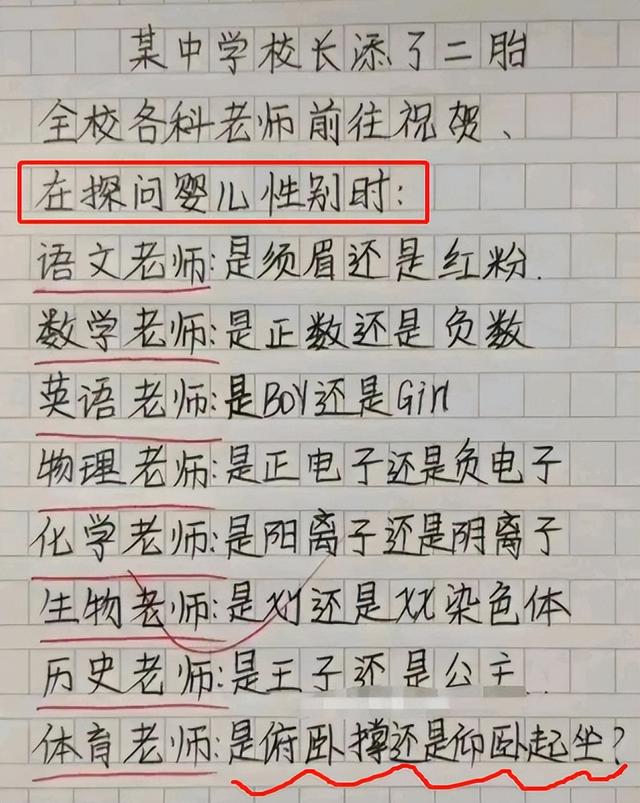 某中学校长添了二胎
全校各科老师前往祝贺、
在探问婴儿性别时:
语文老师:是须眉还是红粉.
数学老师:是正数还是负数
英语老师:是BOY还是Girl
物理老师:是正电子还是负电子
化学老师:是阳离子还是阴离子
生物老师:是XY还是XX染色体
历史老师:是王子还是公主..
体育老师:是俯卧撑还是仰卧起坐?